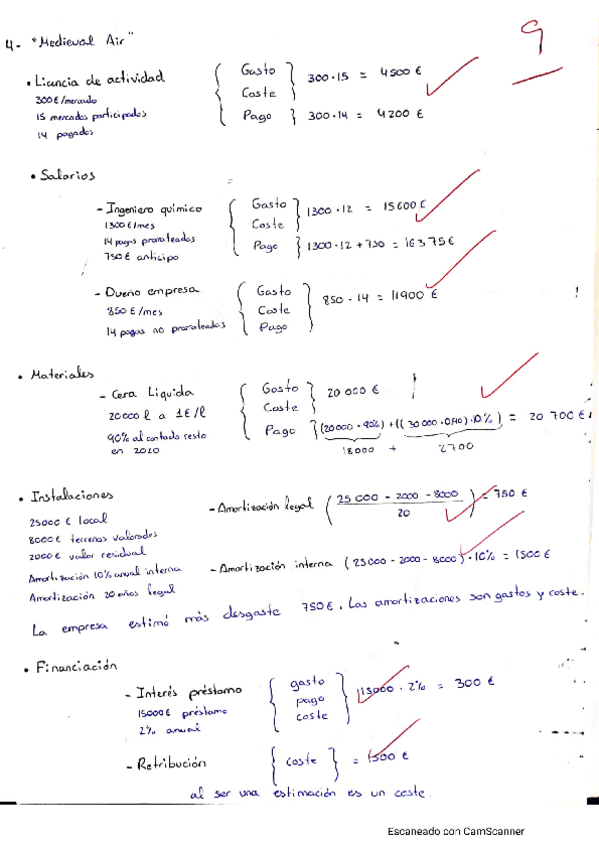 4- "Medieval Air"
9
• Licencia de actividad
300 €/mercado
15 mercados participados
14 pagados
Gasto
Coste
300·15 = 4500 €
Pago
300·14 = 4200 €
• Salarios
- Ingeniero químico
1300 €/mes
14 pagas prorrateadas
750 € anticipo
Gasto
Coste
1300·12 = 15600 €
Pago
1300·12 + 750 = 16375 €
- Dueño empresa
850 €/mes
14 pagas no prorrateadas
Gasto
Coste
Pago
850·14 = 11900 €
!
• Materiales
- Cera Liquida
20000 l a 1€/l
90% al contado resto
en 2020
Gasto
Coste
20 000 €
Pago
(20000·90%) + ((30 000·0,90)·10%) = 20 700 €
18000 + 2700
• Instalaciones
25000 € local
8000 € terrenos valorados
2000 € valor residual
Amortización 10% anual interna
Amortización 20 años legal
- Amortización legal (25 000 - 2000 - 8000 / 20) = 750 €
- Amortización interna (25000 - 2000 - 8000)·10% = 1500 €
La empresa estimó más desgaste 750 €. Las amortizaciones son gastos y coste.
• Financiación
- Interés préstamo
15000 € préstamo
2% anual
gasto
pago
coste
15000·2% = 300 €
- Retribución
coste
= 1500 €
al ser una estimación es un coste.
Escaneado con CamScanner